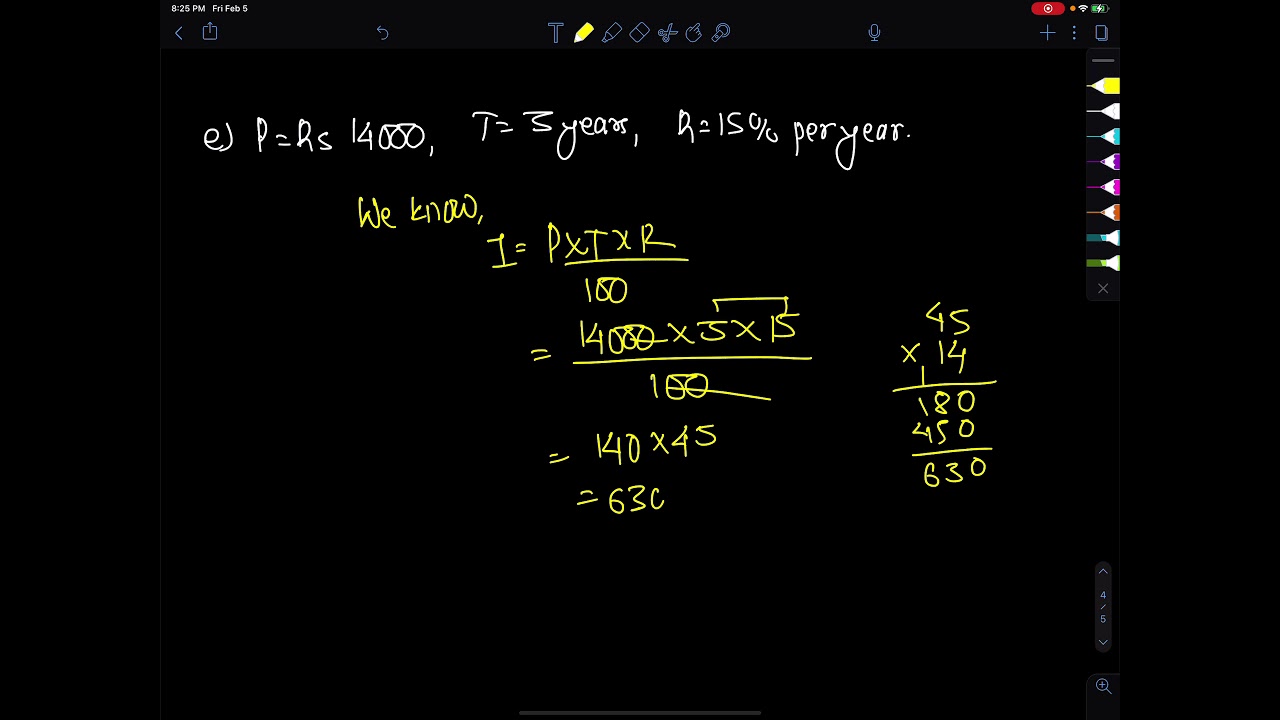 8:25 PM Fri Feb 5
T
e) P=Rs 14000, T= 3 years, R=15% per year.
We know,
I = P×T×R
100
= 14000 × 3 × 15
100
= 140 × 45
= 630
45
× 14
1
180
450
630
4
/
5